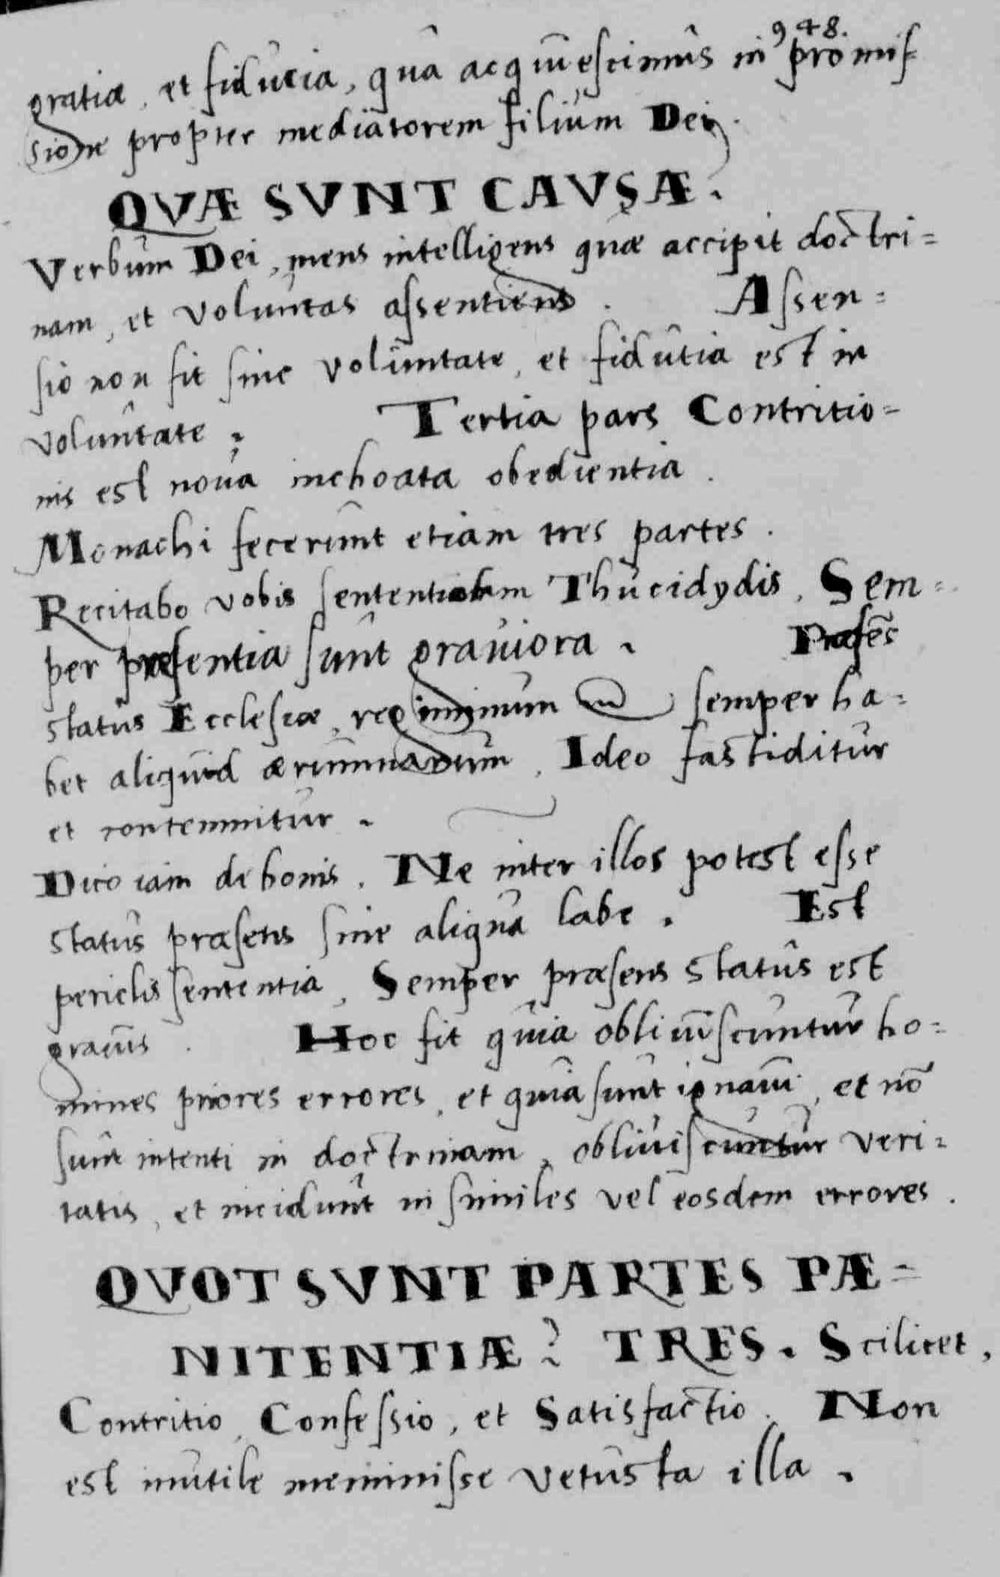 948.
gratiæ, et fidúcia, qua acquiescimús in promis-
sione propter mediatorem filium Dei.
QVÆ SVNT CAVSÆ.
Verbúm Dei, mens intelligens quæ accipit doctri=
nam, et volúntas assentiens. Assen=
sio non fit sine volúntate, et fidútia est in
volúntate. Tertia pars Contritio=
nis est noúa inchoata obedientia.
Monachi fecerúnt etiam tres partes.
Recitabo vobis sententiam Thúcidydis. Sem=
per præsentia súnt graviora. Præsẽs
statús Ecclesiæ, regiminum semper ha=
bet aliquid ærúmnarum. Ideo fastiditur
et contemnitur.
Dico iam de bonis. Ne inter illos potest esse
statús præsens sine aliqua labe. Est
periclis sententia, Semper præsens statús est
gravis. Hoc fit quia obliviscuntur ho=
mines priores errores, et quia súnt ignavi, et nõ
sunt intenti in doctrinam, obliviscuntur veri=
tatis, et incidúnt in similes vel eosdem errores.
QVOT SVNT PARTES PÆ=
NITENTIÆ? TRES. Scilicet,
Contritio, Confessio, et Satisfactio. Non
est inútile meminisse vetústa illa.